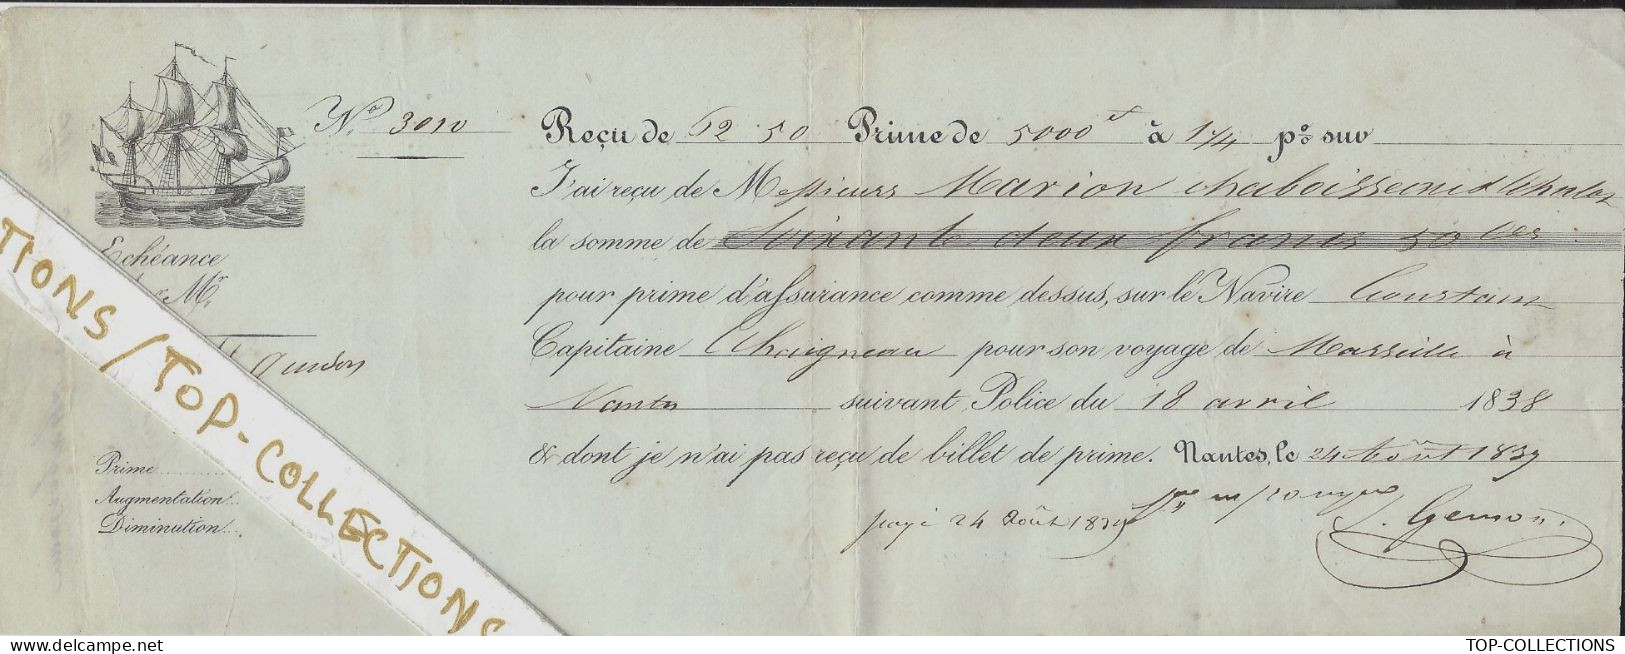 No 3010
Reçu de 62 50 Prime de 5000 f à 1 1/4 p% sur
J'ai reçu de Messieurs Marion Chaboisseau &
la somme de Soixante deux francs 50 ces
pour prime d'assurance comme dessus, sur le Navire Constant
Capitaine Chaigneau pour son voyage de Marseille à
Nantes suivant Police du 18 avril 1838
& dont je n'ai pas reçu de billet de prime. Nantes, le 24 Août 1839
payé 24 Août 1839
Echéance
Mr
Prime
Augmentation
Diminution
TIONS / TOP-COLLECTIONS
www.delcampe.net
TOP-COLLECTIONS